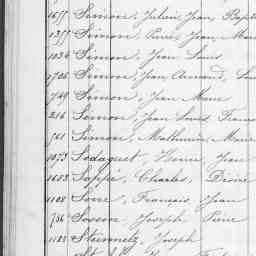 1677 Simon, Julien, Jean, Bapt
1377 Simon, Pierre, Jean, Marie
1034 Simon, Jean Louis
1706 Simon, Jean, Armand, Lou
749 Simon, Jean Marie
216 Simon, Jean Louis, Franço
761 Simon, Mathurin, Marie
1073 Sodaguet, Pierre, Jean
1602 Soppé, Charles, Désiré
1108 Sorre, François, Jean
756 Sovon, Joseph, Pierre
1182 Steinmetz, Joseph